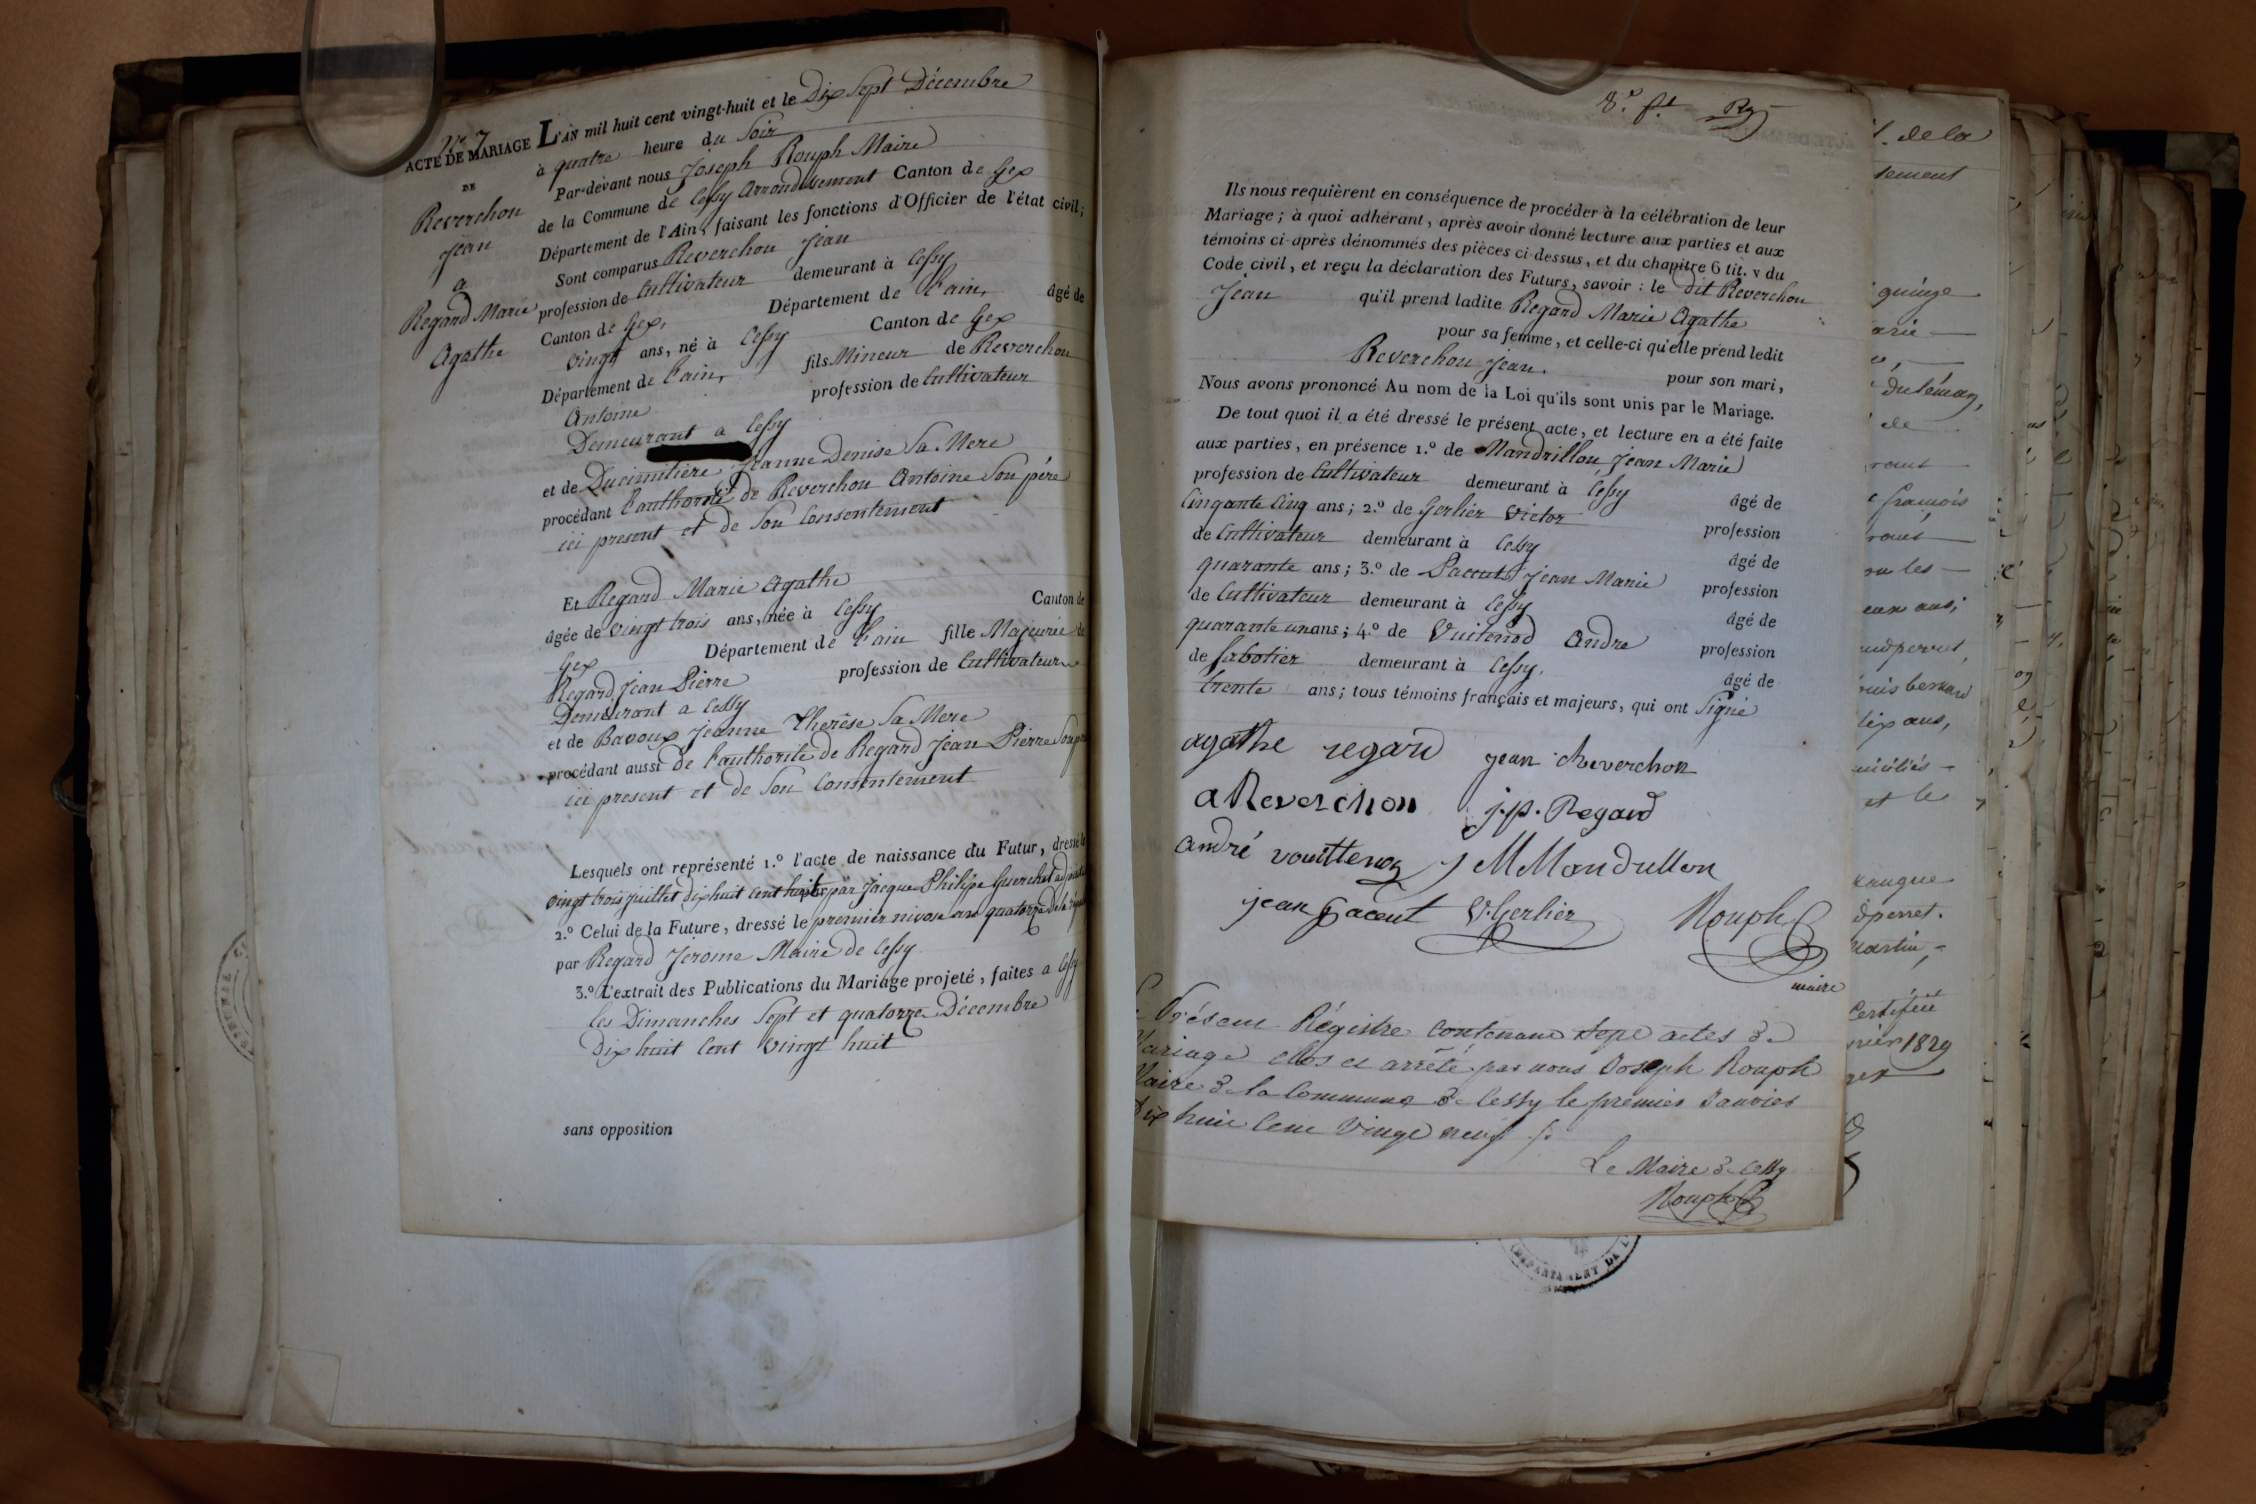 N.° 7
ACTE DE MARIAGE
DE
Reverchon
Jean
a
Regard Marie
Agathe
L'AN mil huit cent vingt-huit et le Dix Sept Décembre
à quatre heure du Soir
Par-devant nous Joseph Rouph Maire
de la Commune de Cessy Arrondissement Canton de Gex
Département de l'Ain, faisant les fonctions d'Officier de l'état civil;
Sont comparus Reverchon Jean
profession de Cultivateur demeurant à Cessy
Canton de Gex, Département de l'ain, âgé de
vingt ans, né à Cessy Canton de Gex
Département de l'ain, fils Mineur de Reverchon
Antoine profession de Cultivateur
Demeurant a Cessy
et de Ducimitiere Jeanne Denise Sa Mere
procédant l'authorité de Reverchon Antoine Son père
ici present et de Son Consentement
Et Regard Marie Agathe
âgée de vingt trois ans, née à Cessy Canton de
Gex Département de l'ain fille Majeure de
Regard Jean Pierre profession de Cultivateur
Demeurant a Cessy
et de Bavoux Jeanne Therèse Sa Mere
procédant aussi de l'authorité de Regard Jean Pierre Son père
ici present et de Son Consentement
Lesquels ont représenté 1.° l'acte de naissance du Futur, dressé le
vingt trois juillet dix huit cent huit par Jacque Philipe Guerchet adjoint
2.° Celui de la Future, dressé le premier nivose an quatorze de la
par Regard Jerome Maire de Cessy
3.° L'extrait des Publications du Mariage projeté, faites a Cessy
les Dimanches Sept et quatorze Décembre
Dix huit Cent Vingt huit
sans opposition
Ils nous requièrent en conséquence de procéder à la célébration de leur
Mariage; à quoi adhérant, après avoir donné lecture aux parties et aux
témoins ci-après dénommés des pièces ci-dessus, et du chapitre 6 tit. v du
Code civil, et reçu la déclaration des Futurs, savoir : le dit Reverchon
Jean qu'il prend ladite Regard Marie Agathe
pour sa femme, et celle-ci qu'elle prend ledit
Reverchon Jean. pour son mari,
Nous avons prononcé Au nom de la Loi qu'ils sont unis par le Mariage.
De tout quoi il a été dressé le présent acte, et lecture en a été faite
aux parties, en présence 1.° de Mandrillon Jean Marie
profession de Cultivateur demeurant à Cessy âgé de
Cinqante Cinq ans; 2.° de Gerlier Victor profession
de Cultivateur demeurant à Cessy âgé de
quarante ans; 3.° de Paccut Jean Marie profession
de Cultivateur demeurant à Cessy âgé de
quarante un ans; 4.° de Vuitenod Andre profession
de Sabotier demeurant à Cessy. âgé de
trente ans; tous témoins français et majeurs, qui ont Signé
agathe regard jean Reverchon
a Reverchon j.p. Regard
andré vouittenoz J M Mandrillon
jean paccut V. Gerlier Rouph
maire
Présent Régistre Contenant Sept actes de
Mariage clos et arrêté par nous Joseph Rouph
Maire de la Commune de Cessy le premier Janvier
Dix huit Cent Vingt neuf
Le Maire de Cessy
Rouph